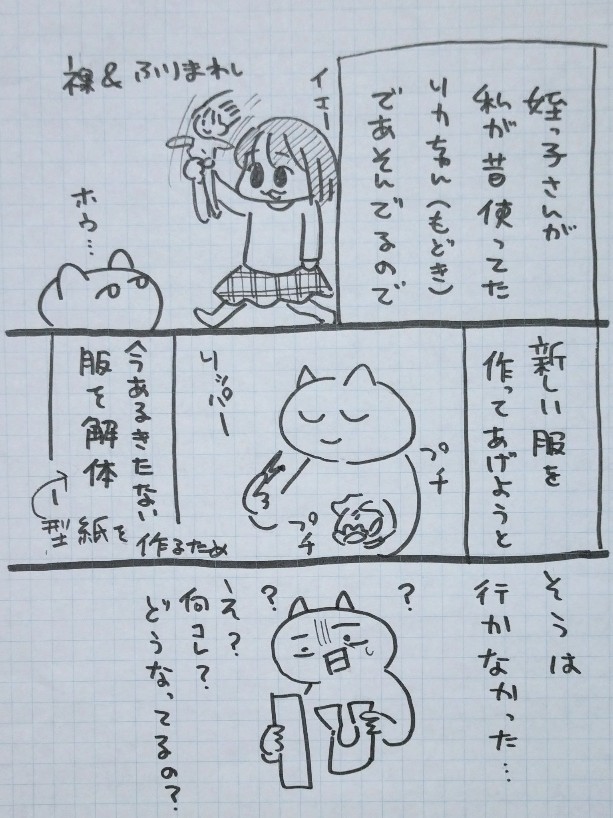 姪っ子さんが
私が昔使ってた
リカちゃん(もどき)
であそんでるので
イエー
裸&ふりまわし
ホウ…
新しい服を
作ってあげようと
プチ
プチ
リッパー
今あるきたない
服を解体
型紙を作るため
そうは
行かなかった…
?
?
え?
何コレ?
どうなってるの?